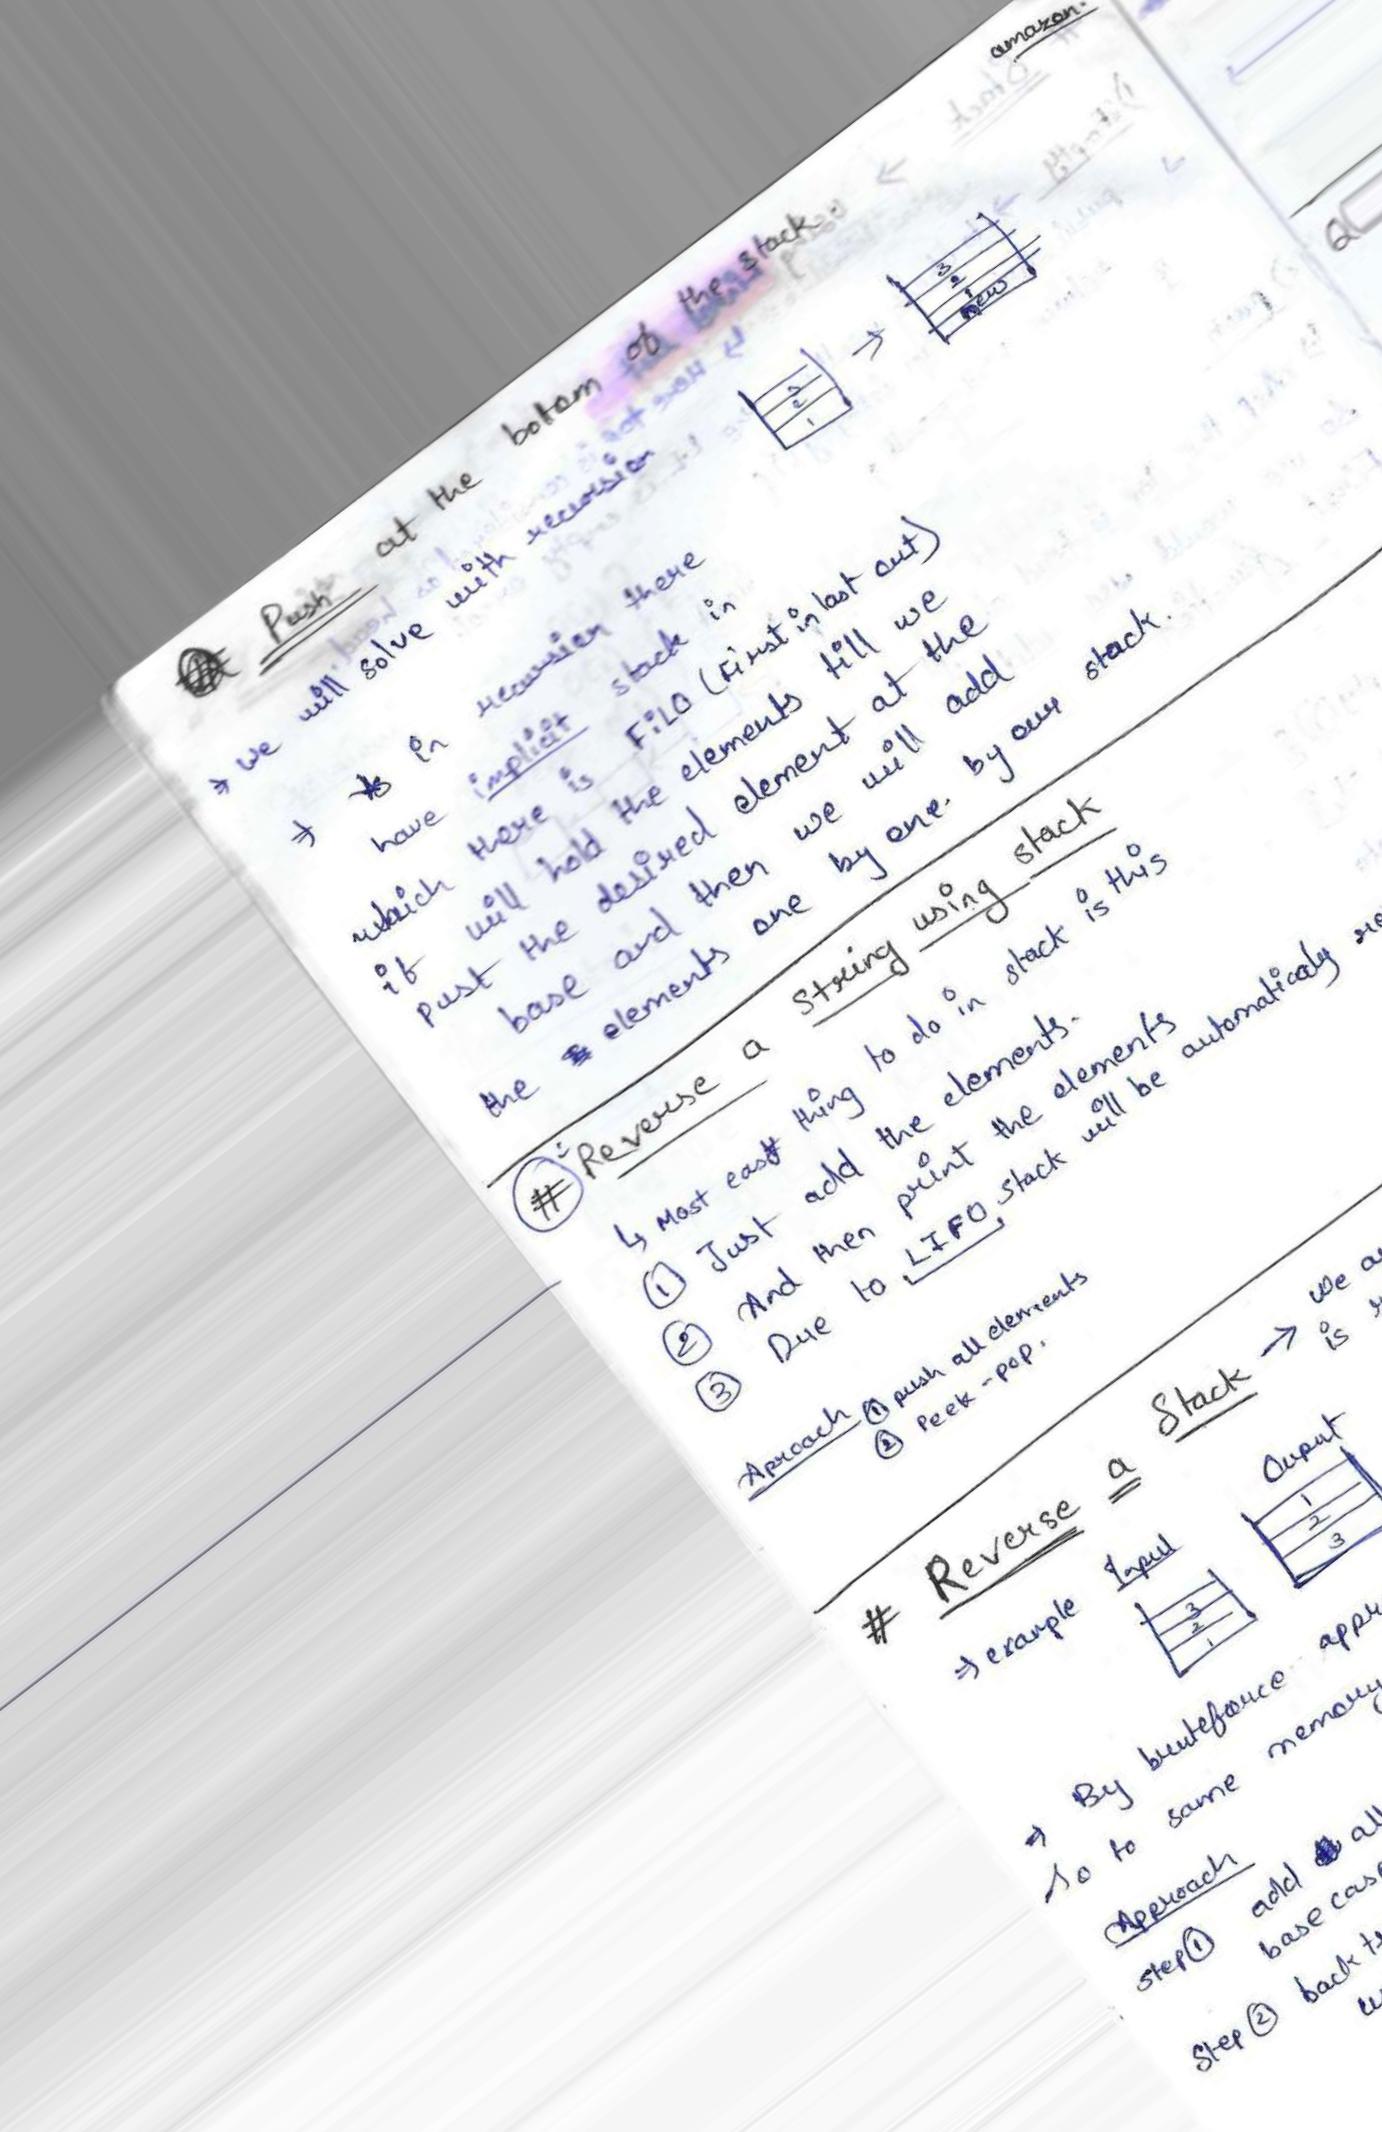 amazon.
# Push at the bottom of the stack
→ we will solve with recursion
3
2
1
→
3
2
1
new
⇒ in recursion there
have implicit stack in
which there is FiLO (First in last out)
it will hold the elements till we
pust the desired element at the
base and then we will add
the elements one by one. by our stack.
# Reverse a String using stack
↳ Most easy thing to do in stack is this
① Just add the elements.
② And then print the elements
③ Due to LIFO stack will be automaticaly
Aproach ① push all elements
② Peek - pop.
# Reverse a Stack → we
is
→ example Input
3
2
1
Ouput
1
2
3
→ By bruteforce
So to same memory
Approach
step ① add
base case
Step ② back